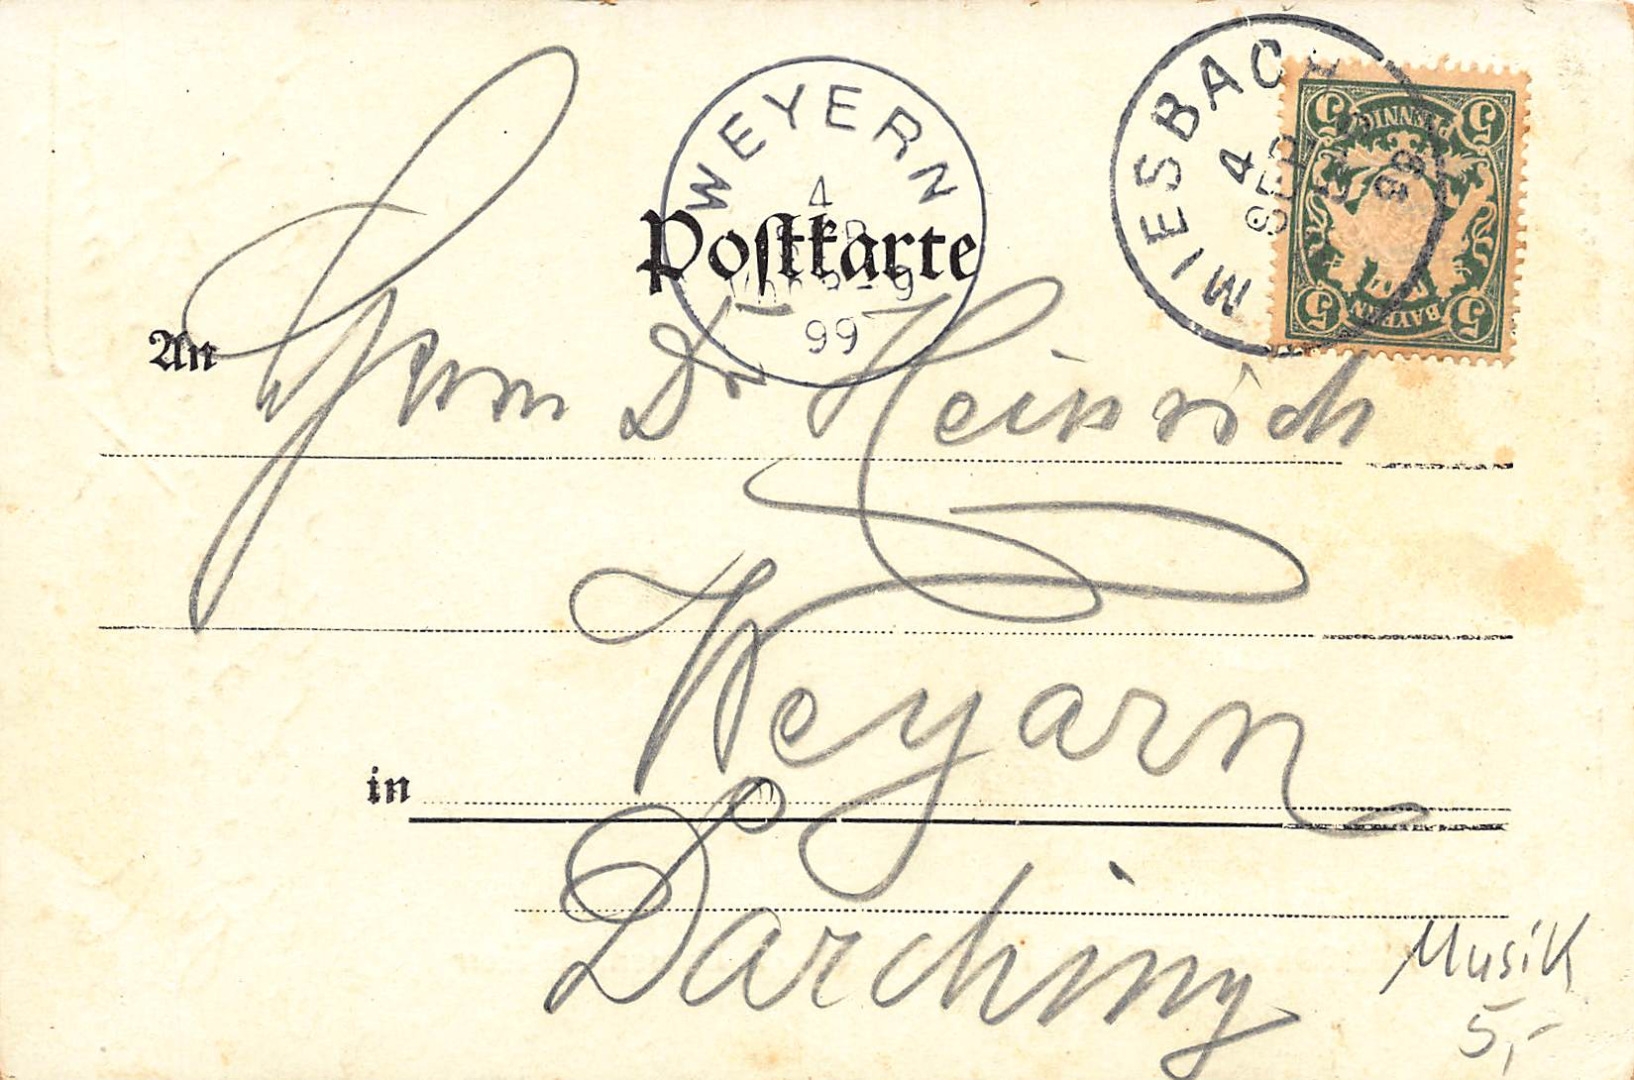 WEYERN
4
SEP
VOR 8-9
99
Postkarte
MIESBACH
4
SEP
99
5 PFENNIG 5
5 BAYERN 5
An Herrn Dr Heinrich
Weyarn
in
Darching
Musik
5,-